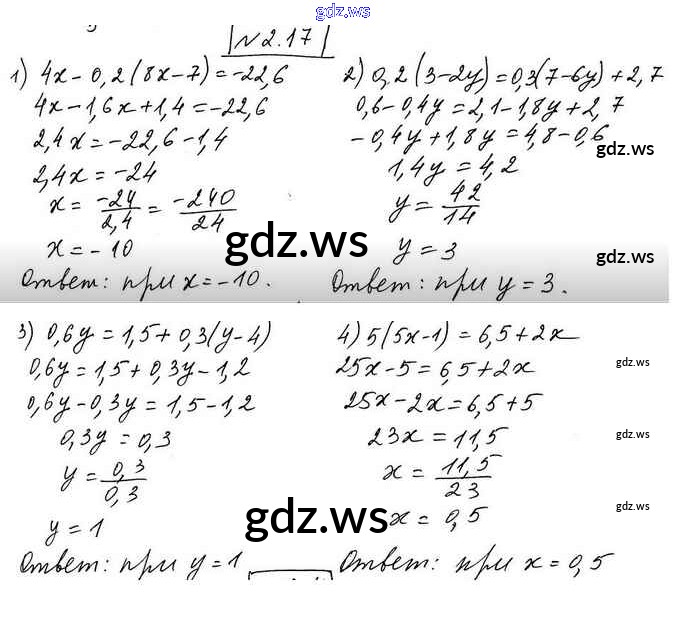 gdz.ws
№2.17
1) 4x-0,2(8x-7)=-22,6
4x-1,6x+1,4=-22,6
2,4x=-22,6-1,4
2,4x=-24
x=-24/2,4=-240/24
x=-10
Ответ: при x=-10.
2) 0,2(3-2y)=0,3(7-6y)+2,7
0,6-0,4y=2,1-1,8y+2,7
-0,4y+1,8y=4,8-0,6
gdz.ws
1,4y=4,2
y=42/14
gdz.ws
y=3
gdz.ws
Ответ: при y=3.
3) 0,6y=1,5+0,3(y-4)
0,6y=1,5+0,3y-1,2
0,6y-0,3y=1,5-1,2
0,3y=0,3
y=0,3/0,3
y=1
Ответ: при y=1
4) 5(5x-1)=6,5+2x
25x-5=6,5+2x
gdz.ws
25x-2x=6,5+5
23x=11,5
gdz.ws
x=11,5/23
gdz.ws
gdz.ws
x=0,5
Ответ: при x=0,5